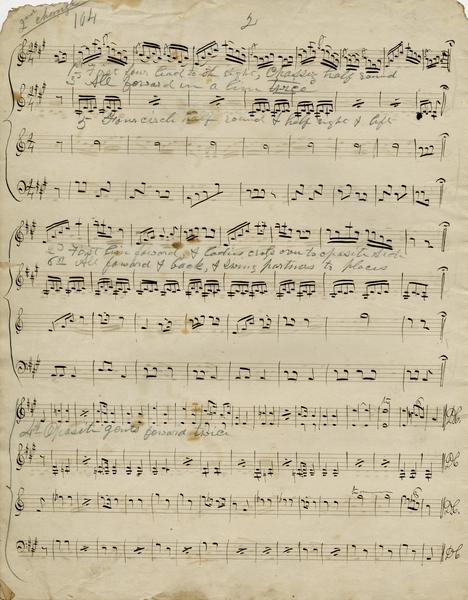 2nd change
104
2
1st First four lead to the right, Chassie half round
3d All forward in a line twice
5 Four circle half round & half right & left
2d First line forward, & ladies cross over to opposite side
6th All forward & back, & swing partners to places
4th Oposite gents forward twice
D.C.
D.C.
D.C.
D.C.